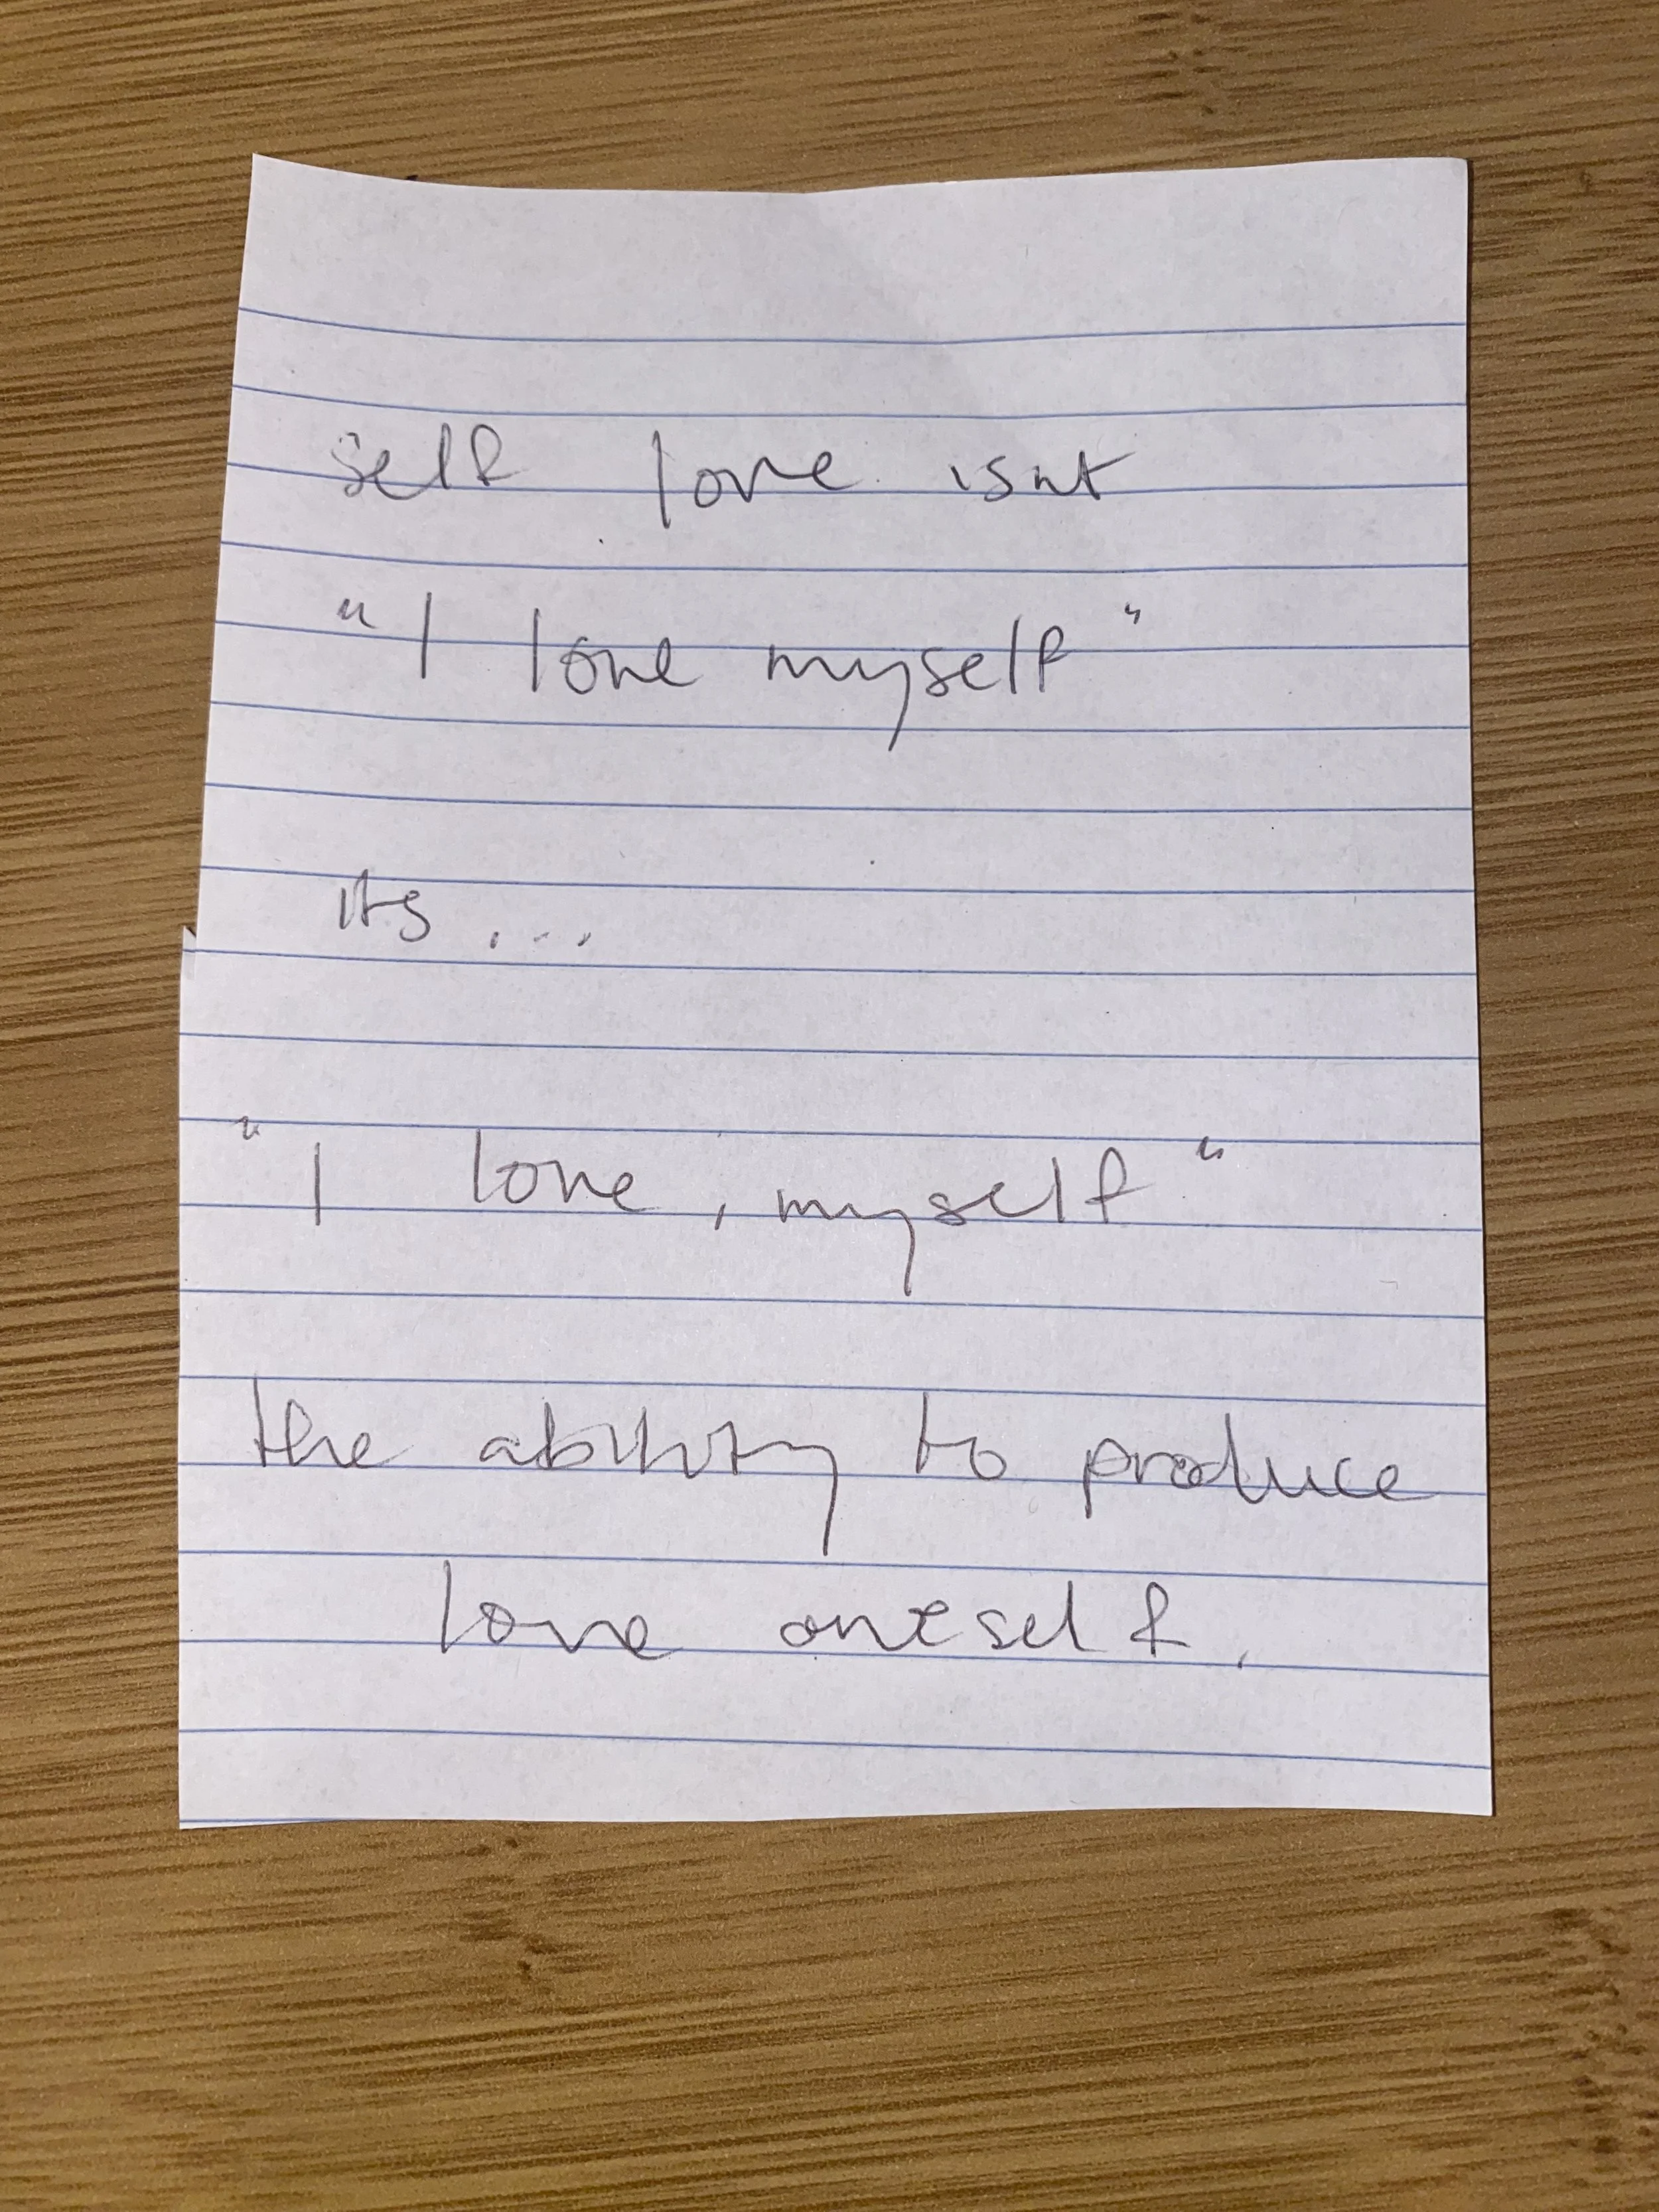 self love isnt
"I love myself"
its ...
"I love, myself"
the ability to produce
love oneself.